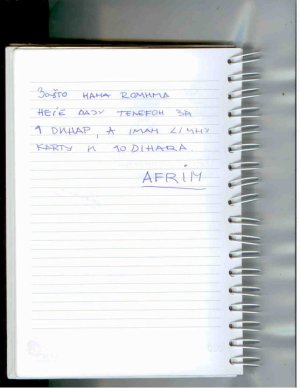 Зашто нама Romима
неће дају телефон за
1 динар, а имам Lичну
карту и 10 DIнARA.
AFRIM